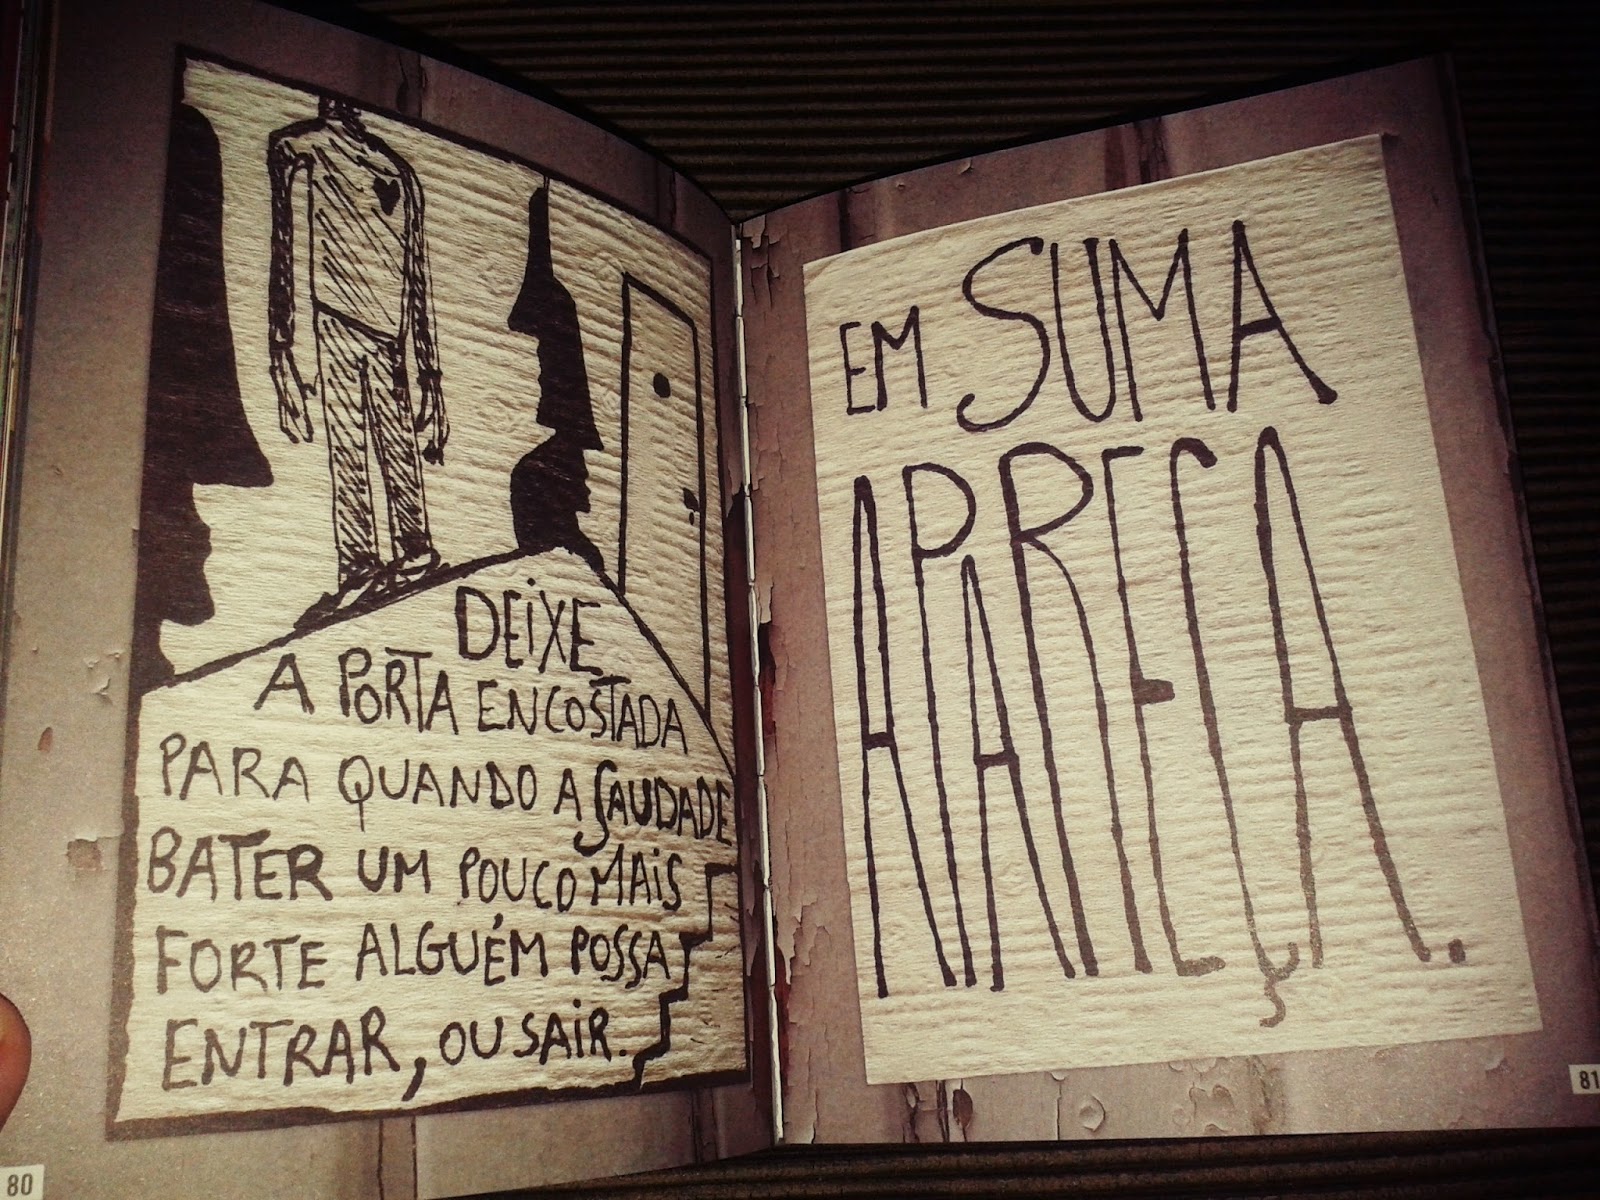 DEIXE
A PORTA ENCOSTADA
PARA QUANDO A SAUDADE
BATER UM POUCO MAIS
FORTE ALGUÉM POSSA
ENTRAR, OU SAIR.
80
EM SUMA
APAREÇA.
81